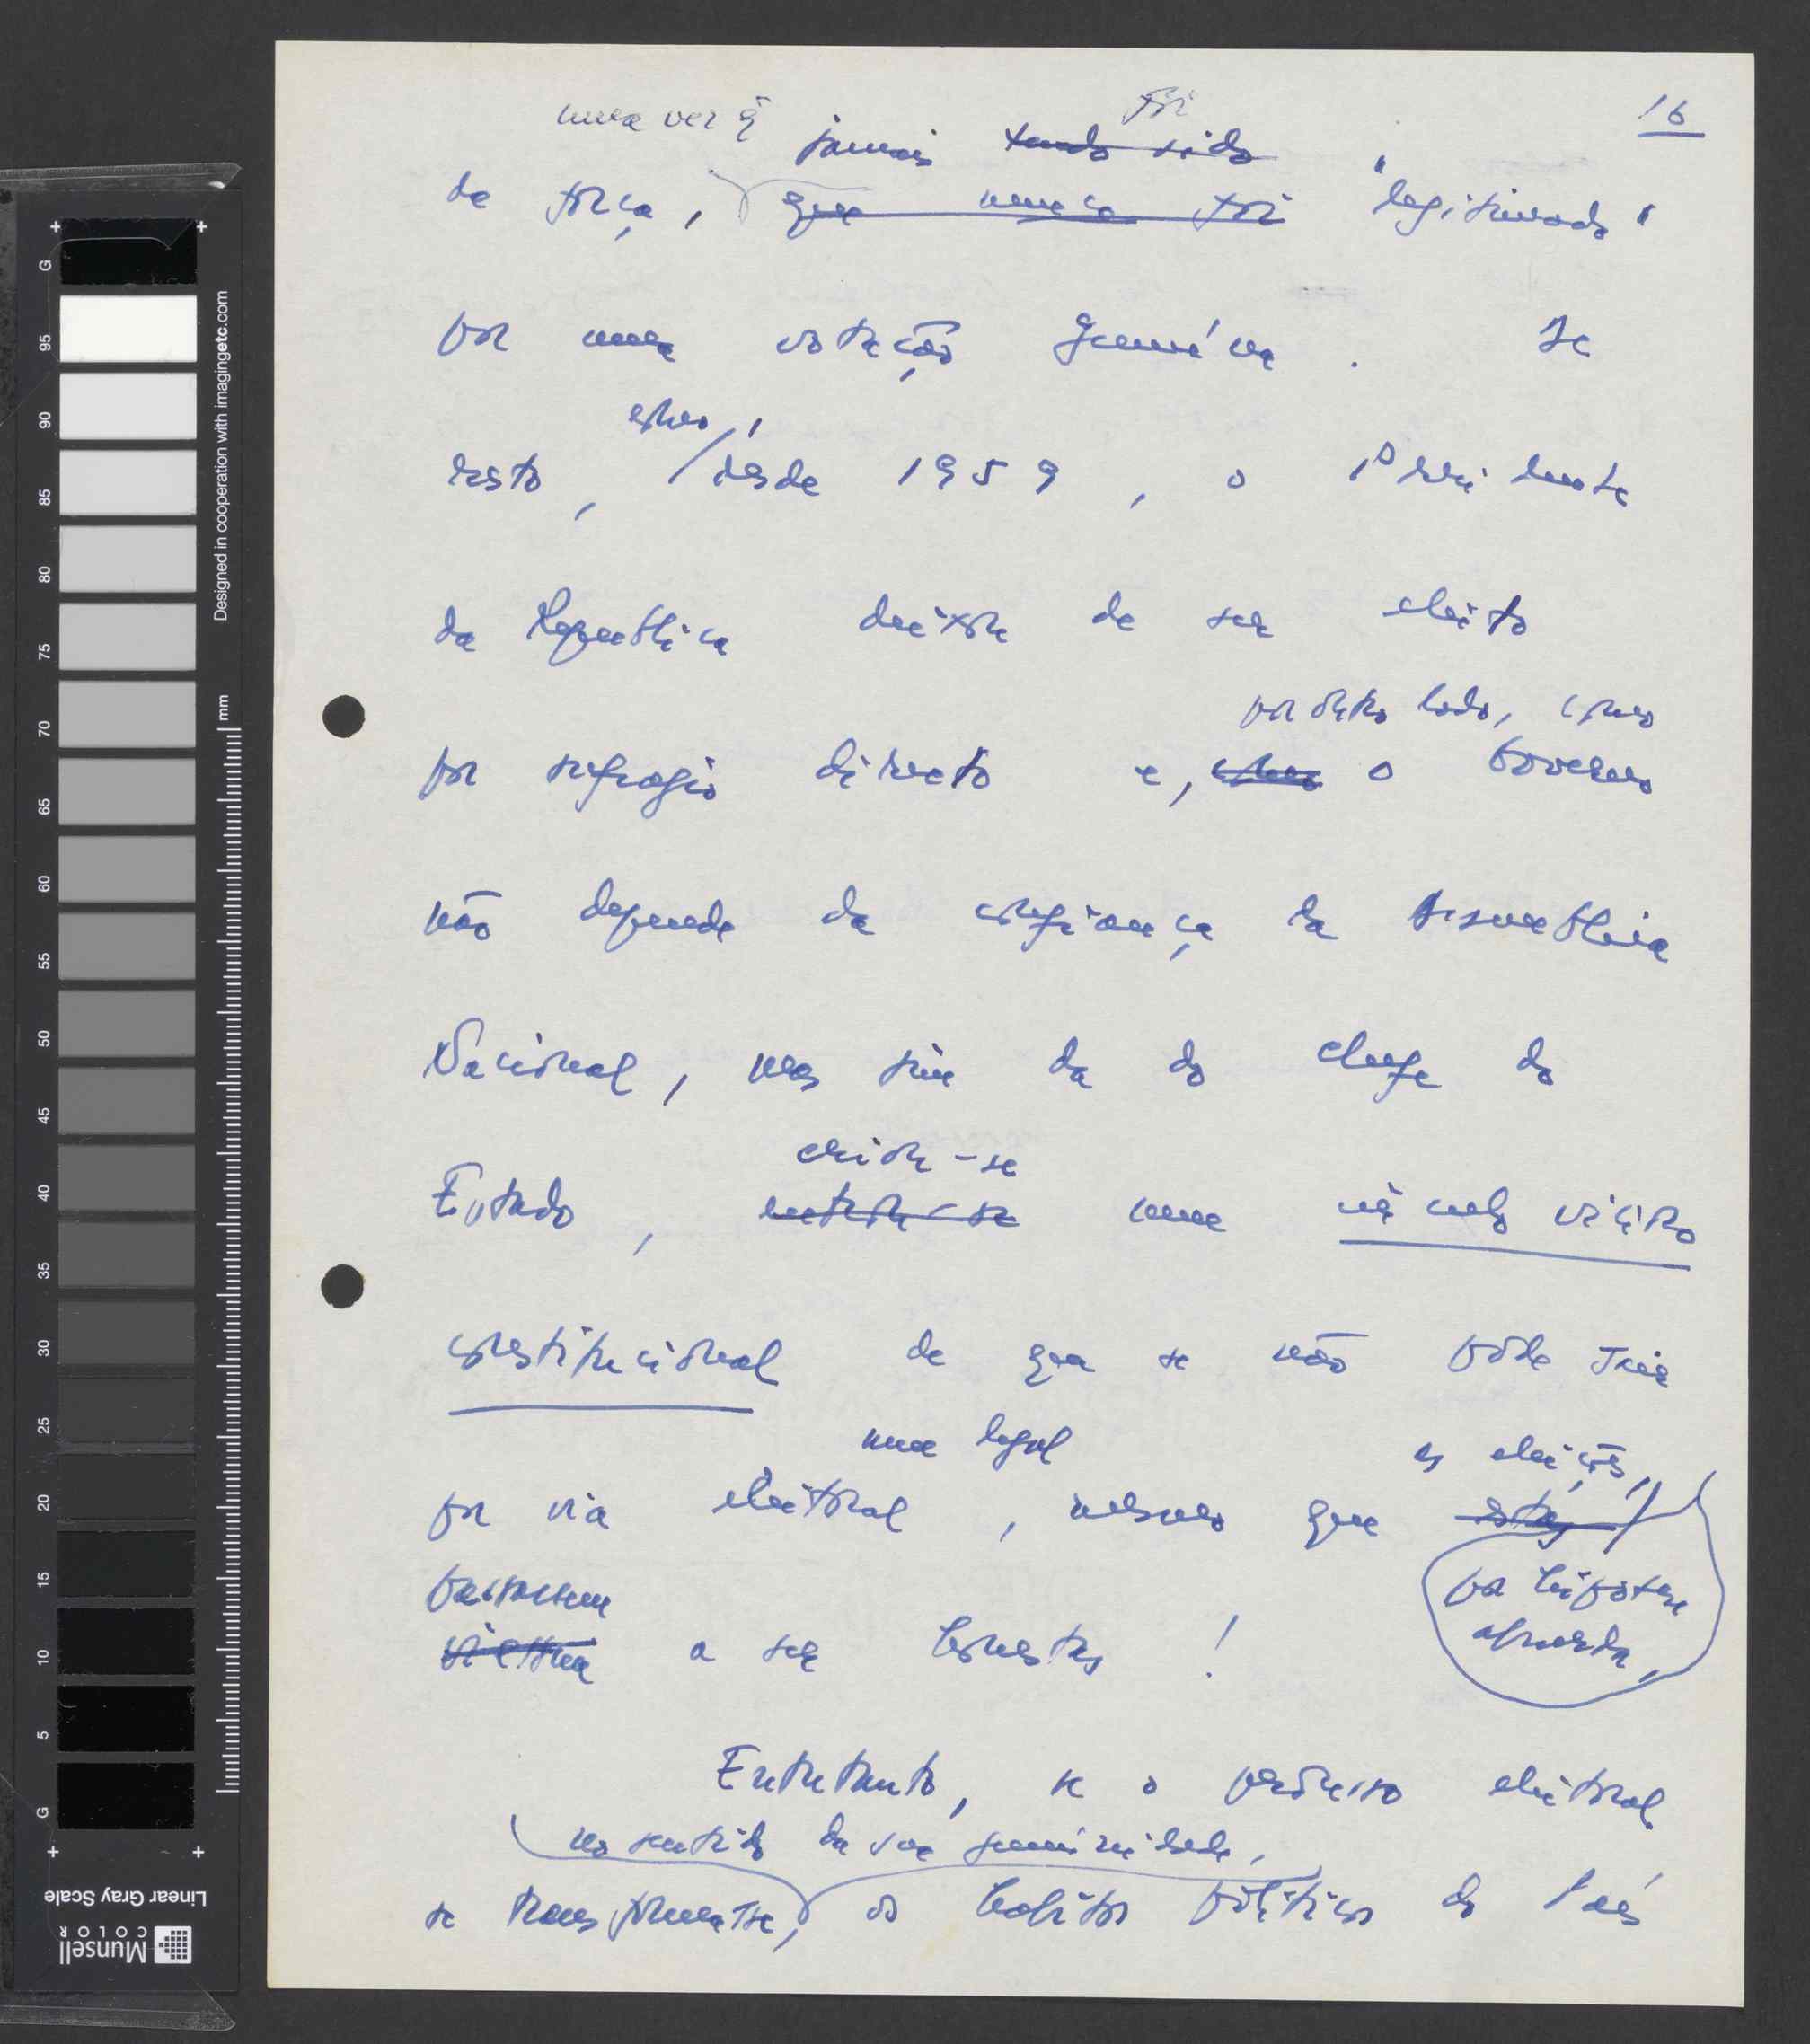 16
uma vez q jamais tendo sido foi
de força, que nunca foi "legitimado"
por uma votação genuína. De
resto, como, desde 1959, o Presidente
da República deixou de ser eleito
por outro lado, como
por sufrágio directo e, como o Governo
não depende da confiança da Assembleia
Nacional, mas sim da do chefe do
criou-se
Estado, um círculo vicioso
constitucional de que se não pode sair
legal as eleições,
por via eleitoral, mesmo que estas
por hipótese
absurda,
passassem
viessem a ser honestas!
Entretanto, se o processo eleitoral
no sentido da sua genuinidade,
se transformasse, os hábitos políticos do País
G
95
90
85
80
75
70
65
60
55
50
45
40
35
30
25
20
15
10
5
G
mm
Designed in cooperation with imagingetc.com
Linear Gray Scale
Munsell
COLOR